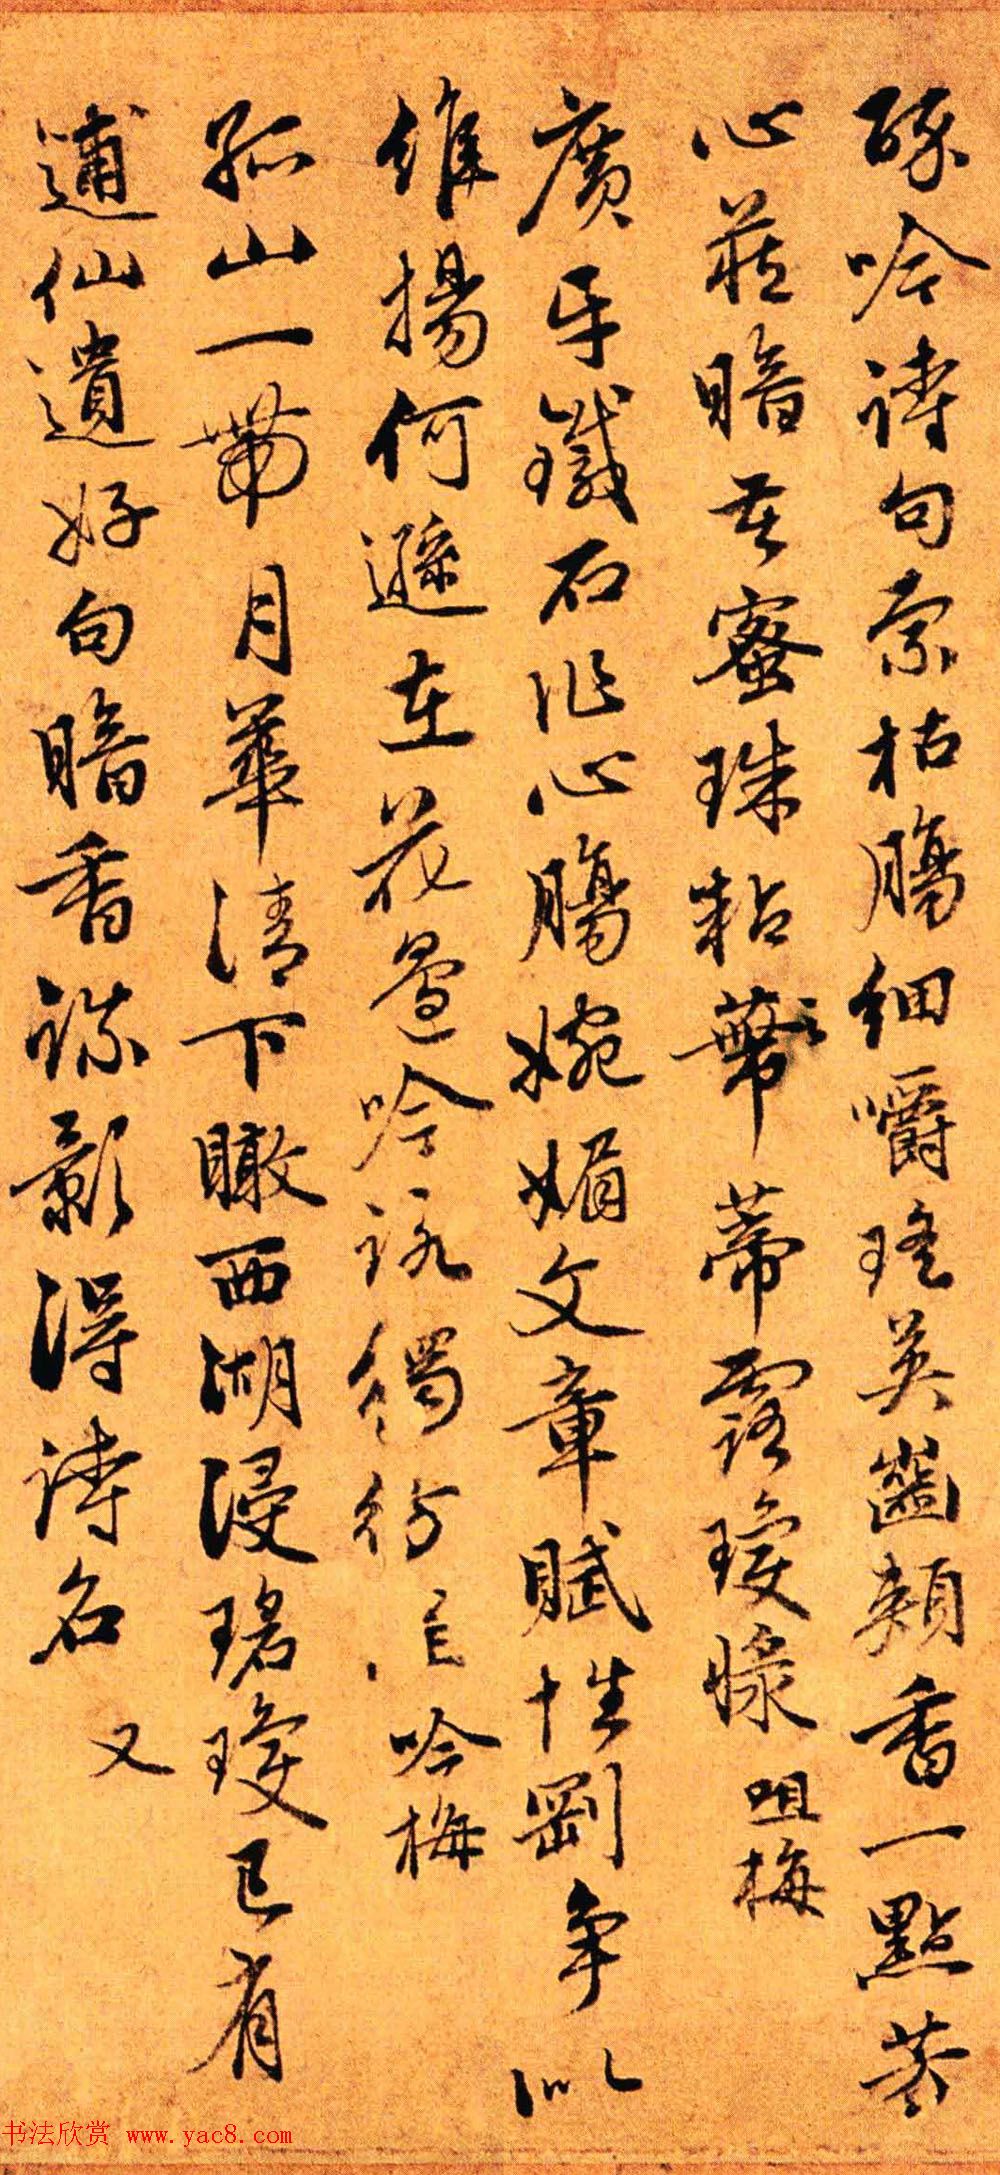 酥吟诗句索枯腸細嚼瑤英齒頰香一點芳
心莊暗在蜜珠粘帶蒂露瓊㯝咀梅
廣平鐵石作心腸婉媚文章賦性剛争似
維揚何遜在花邊吟詠獨徬徨吟梅
孤山一帶月華清下瞰西湖浸碧瓊已有
逋仙遺好句暗香疎影得詩名又
书法欣赏 www.yac8.com